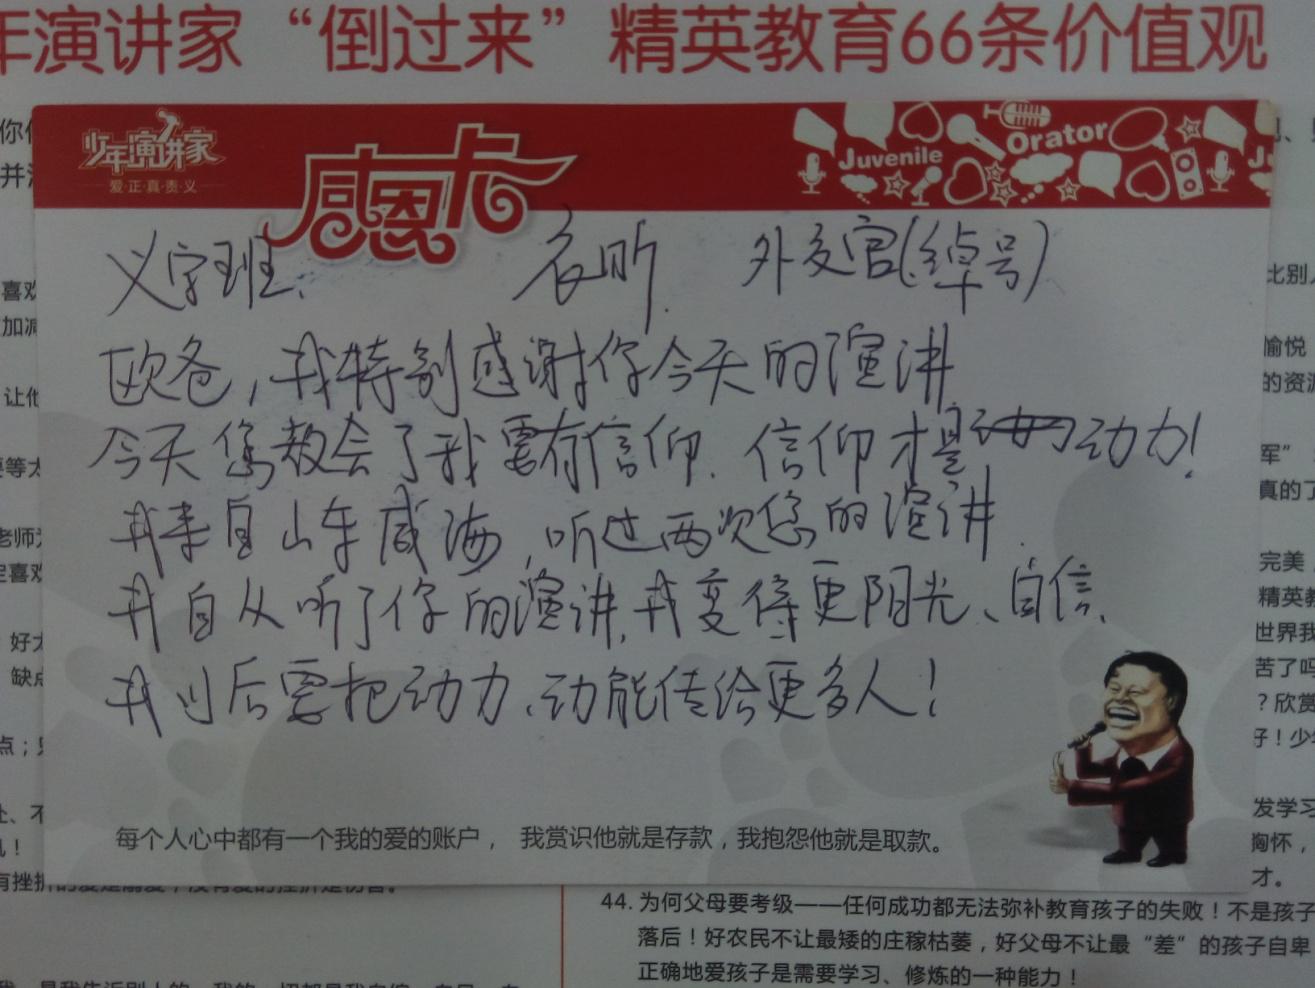 年演讲家“倒过来”精英教育66条价值观
少年演讲家
爱·正·真·责·义
感恩卡
Juvenile
Orator
义字班. 衣昕. 外交官(绰号)
欧爸,我特别感谢你今天的演讲
今天您教会了我要有信仰.信仰才是动力!
我来自山东威海,听过两次您的演讲.
我自从听了你的演讲,我变得更阳光、自信.
我以后要把动力、动能传给更多人!
每个人心中都有一个我的爱的账户, 我赏识他就是存款,我抱怨他就是取款。
44. 为何父母要考级——任何成功都无法弥补教育孩子的失败!不是孩子
落后!好农民不让最矮的庄稼枯萎,好父母不让最“差”的孩子自卑
正确地爱孩子是需要学习、修炼的一种能力!
比别
愉悦
的资源
军”
真的了
完美
精英教
世界我
苦了吗
?欣赏
好!少年
发学习
胸怀,
才。
你
并
喜欢
加减
让他
要等太
老师
定喜欢
好太
缺点
点;